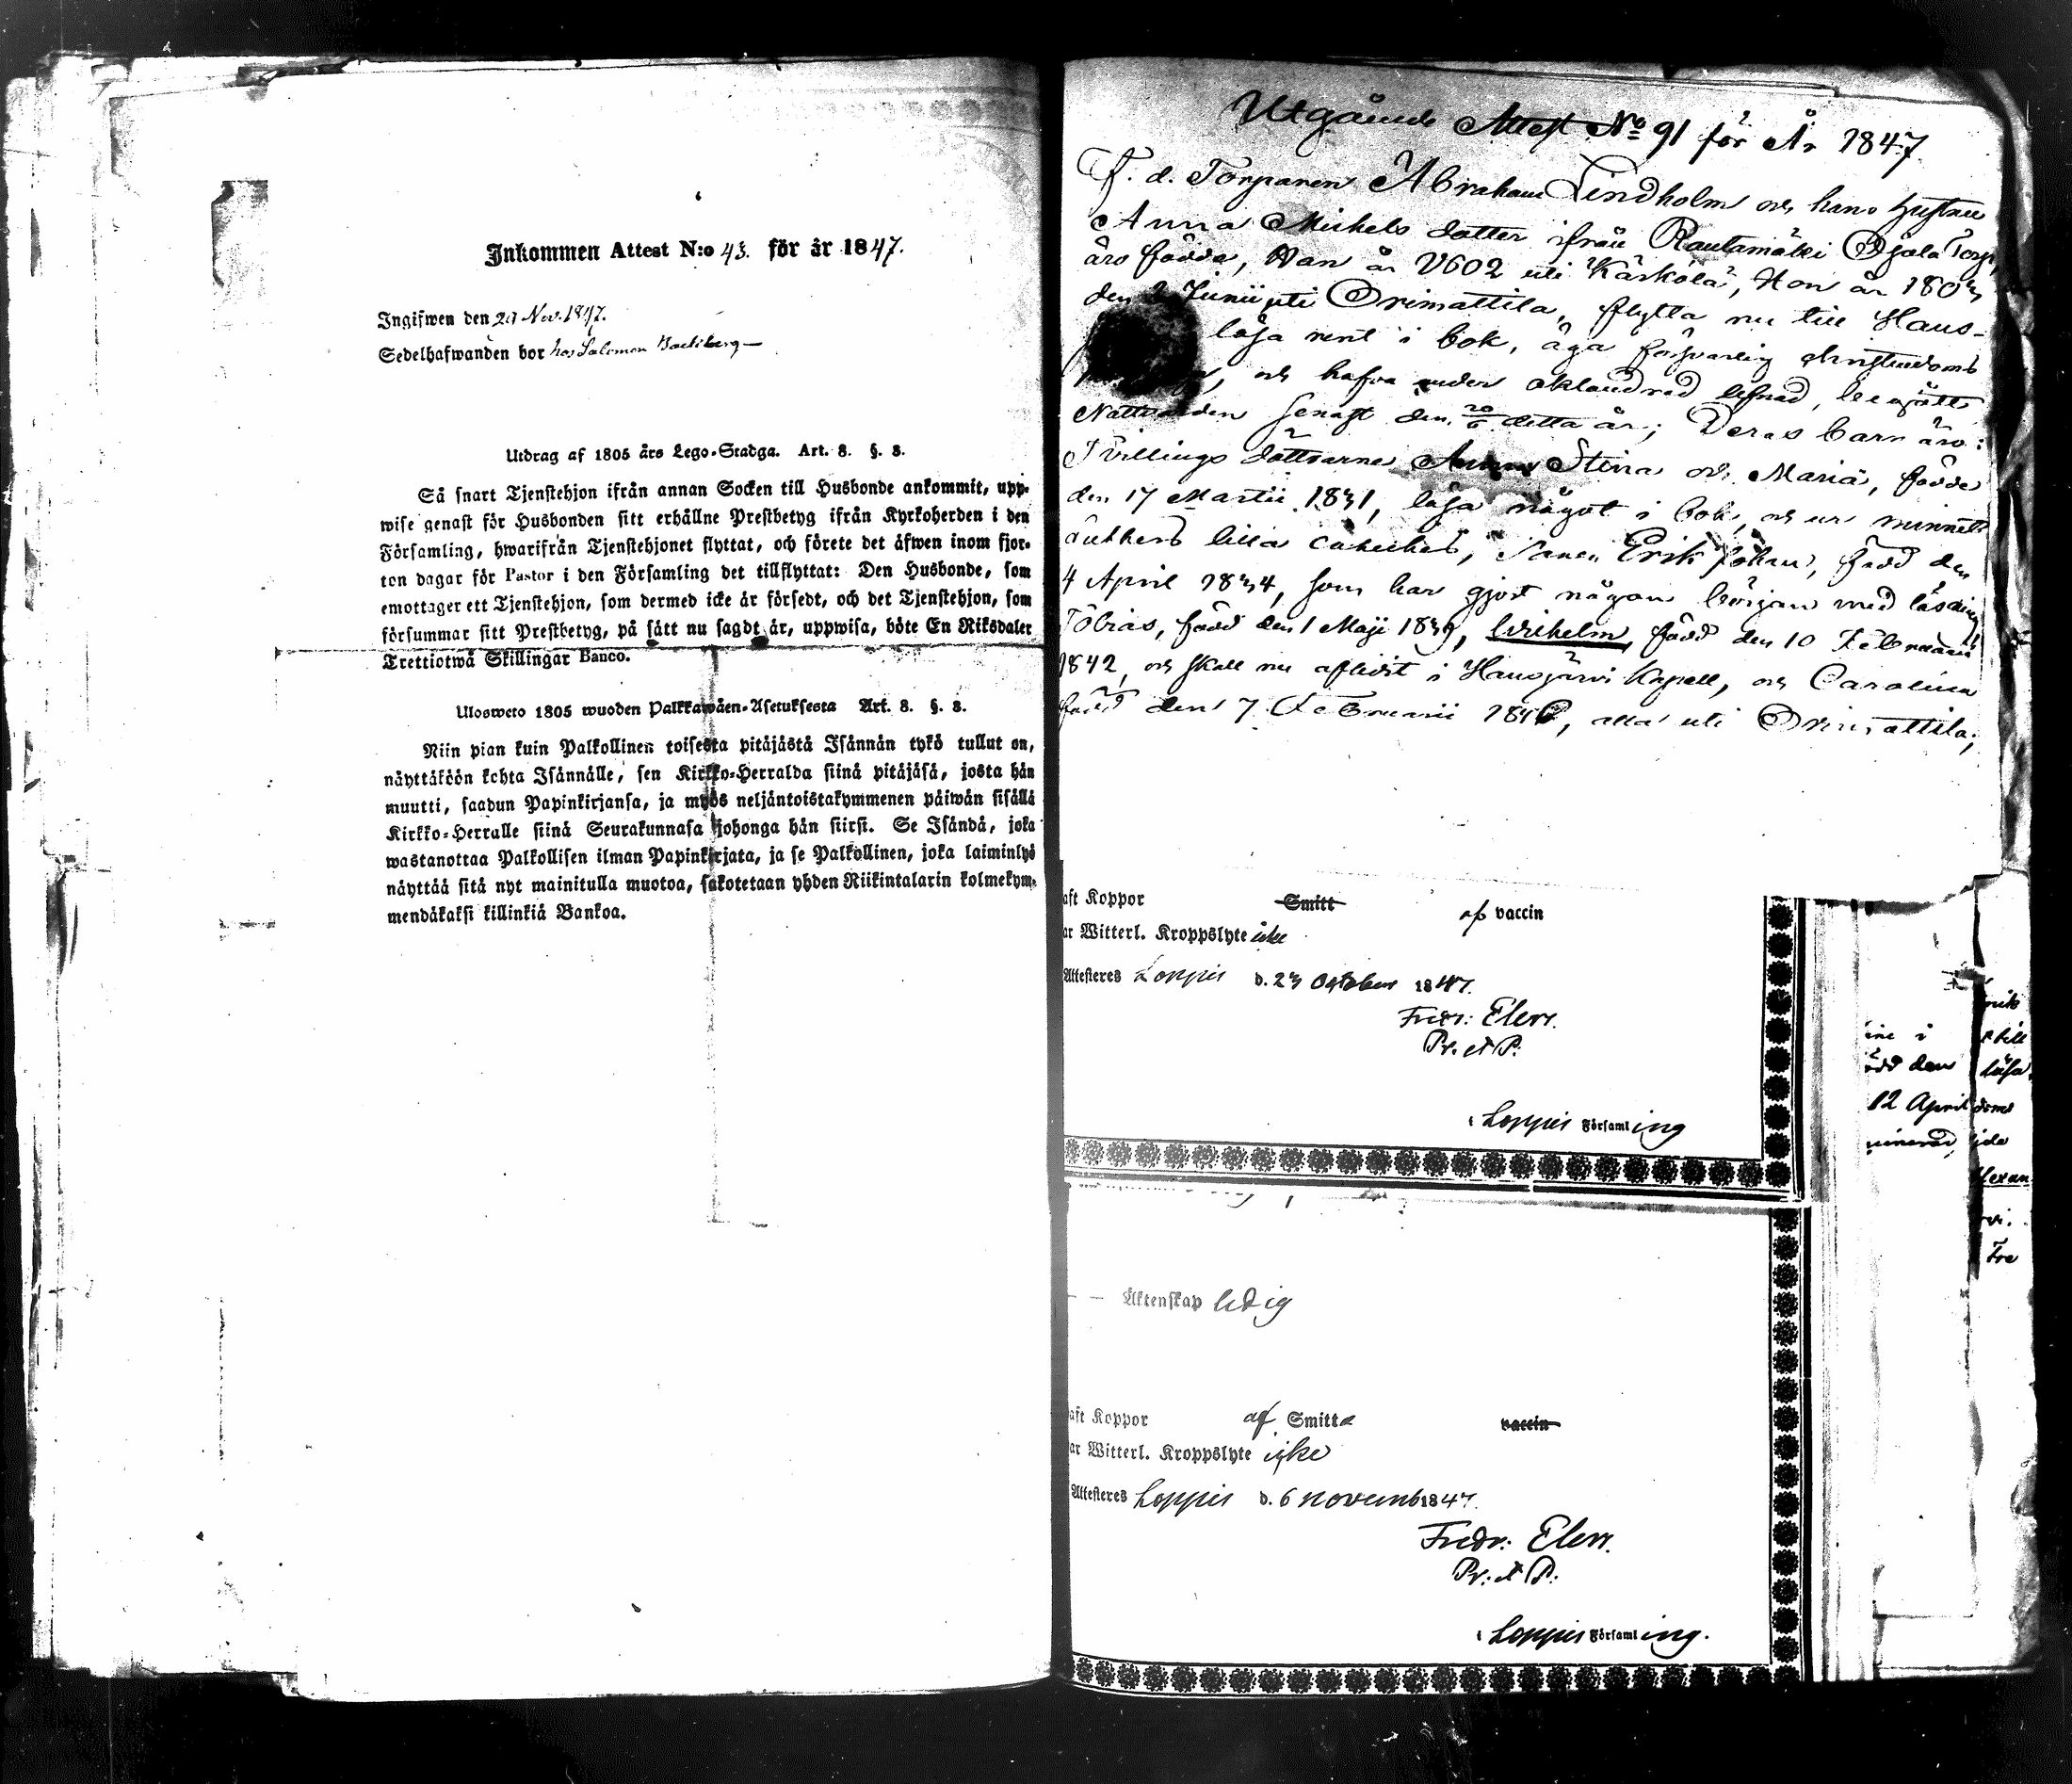 Inkommen Attest N:o 43. för år 1847.
Ingifwen den 29 Nov. 1847.
Sedelhafwanden bor hos Salomon
Utdrag af 1805 års Lego-Stadga. Art. 8. §. 8.
Så snart Tjenstehjon ifrån annan Socken till Husbonde ankommit, upp-
wise genast för Husbonden sitt erhållne Prestbetyg ifrån Kyrkoherden i den
Församling, hwarifrån Tjenstehjonet flyttat, och förete det äfwen inom fjor-
ton dagar för Pastor i den Församling det tillflyttat: Den Husbonde, som
emottager ett Tjenstehjon, som dermed icke är försedt, och det Tjenstehjon, som
försummar sitt Prestbetyg, på sätt nu sagdt är, uppwisa, böte En Riksdaler
Trettiotwå Skillingar Banco.
Ulosweto 1805 wuoden Palkkawäen-Asetuksesta Art. 8. §. 8.
Niin pian kuin Palkollinen toisesta pitäjästä Isännän tykö tullut on,
näyttäköön kohta Isännälle, sen Kirkko-Herralda siinä pitäjäsä, josta hän
muutti, saadun Papinkirjansa, ja myös neljäntoistakymmenen päiwän sisällä
Kirkko-Herralle siinä Seurakunnasa johonga hän siirsi. Se Isändä, joka
wastanottaa Palkollisen ilman Papinkirjata, ja se Palkollinen, joka laiminlyö
näyttää sitä nyt mainitulla muotoa, sakotetaan yhden Riikintalarin kolmekym-
mendäkaksi killinkiä Bankoa.
Utgående Attest No 91 för År 1847
F. d. Torparen Abraham Lindholm och hans hustru
Anna Michels dotter ifrån Rautamäki Ojala Torp,
äro födde, Han år 1802 uti Kärkölä, Hon år 1803
den 2 Junii uti Orimattila, flytta nu till Haus-
läsa rent i bok, äga försvarlig christendoms
och hafva under oklandrad lefnad, begått
Nattvarden senast den 20/6 detta år; Deras barn äro:
Tvillings döttrarne Anna Stina och Maria, födde
den 17 Martii 1831, läsa något i bok, och ur minnet
Lutheri lilla cateches, Sonen Erik Johan, född den
4 April 1834, som har gjort någon början med läsning
Tobias, född den 1 Maji 1839, Wilhelm, född den 10 Februarii
1842, och skall nu aflidit i Hausjärvi Kapell, och Carolina
född den 7 Februarii 1846, alla uti Orimattila;
aft Koppor Smitt af vaccin
ar Witterl. Kroppslyte icke
Attesteres Loppis d. 23 October 1847.
Fredr: Elers.
Pr. et P:
i Loppis Församling
Äktenskap ledig
aft Koppor af Smitta vaccin
ar Witterl. Kroppslyte icke
Attesteres Loppis d. 6 novemb 1847.
Fredr: Elers.
Pr: et P:
i Loppis Församling.
ine i
ödd den
12 April
till
läsa
Fre